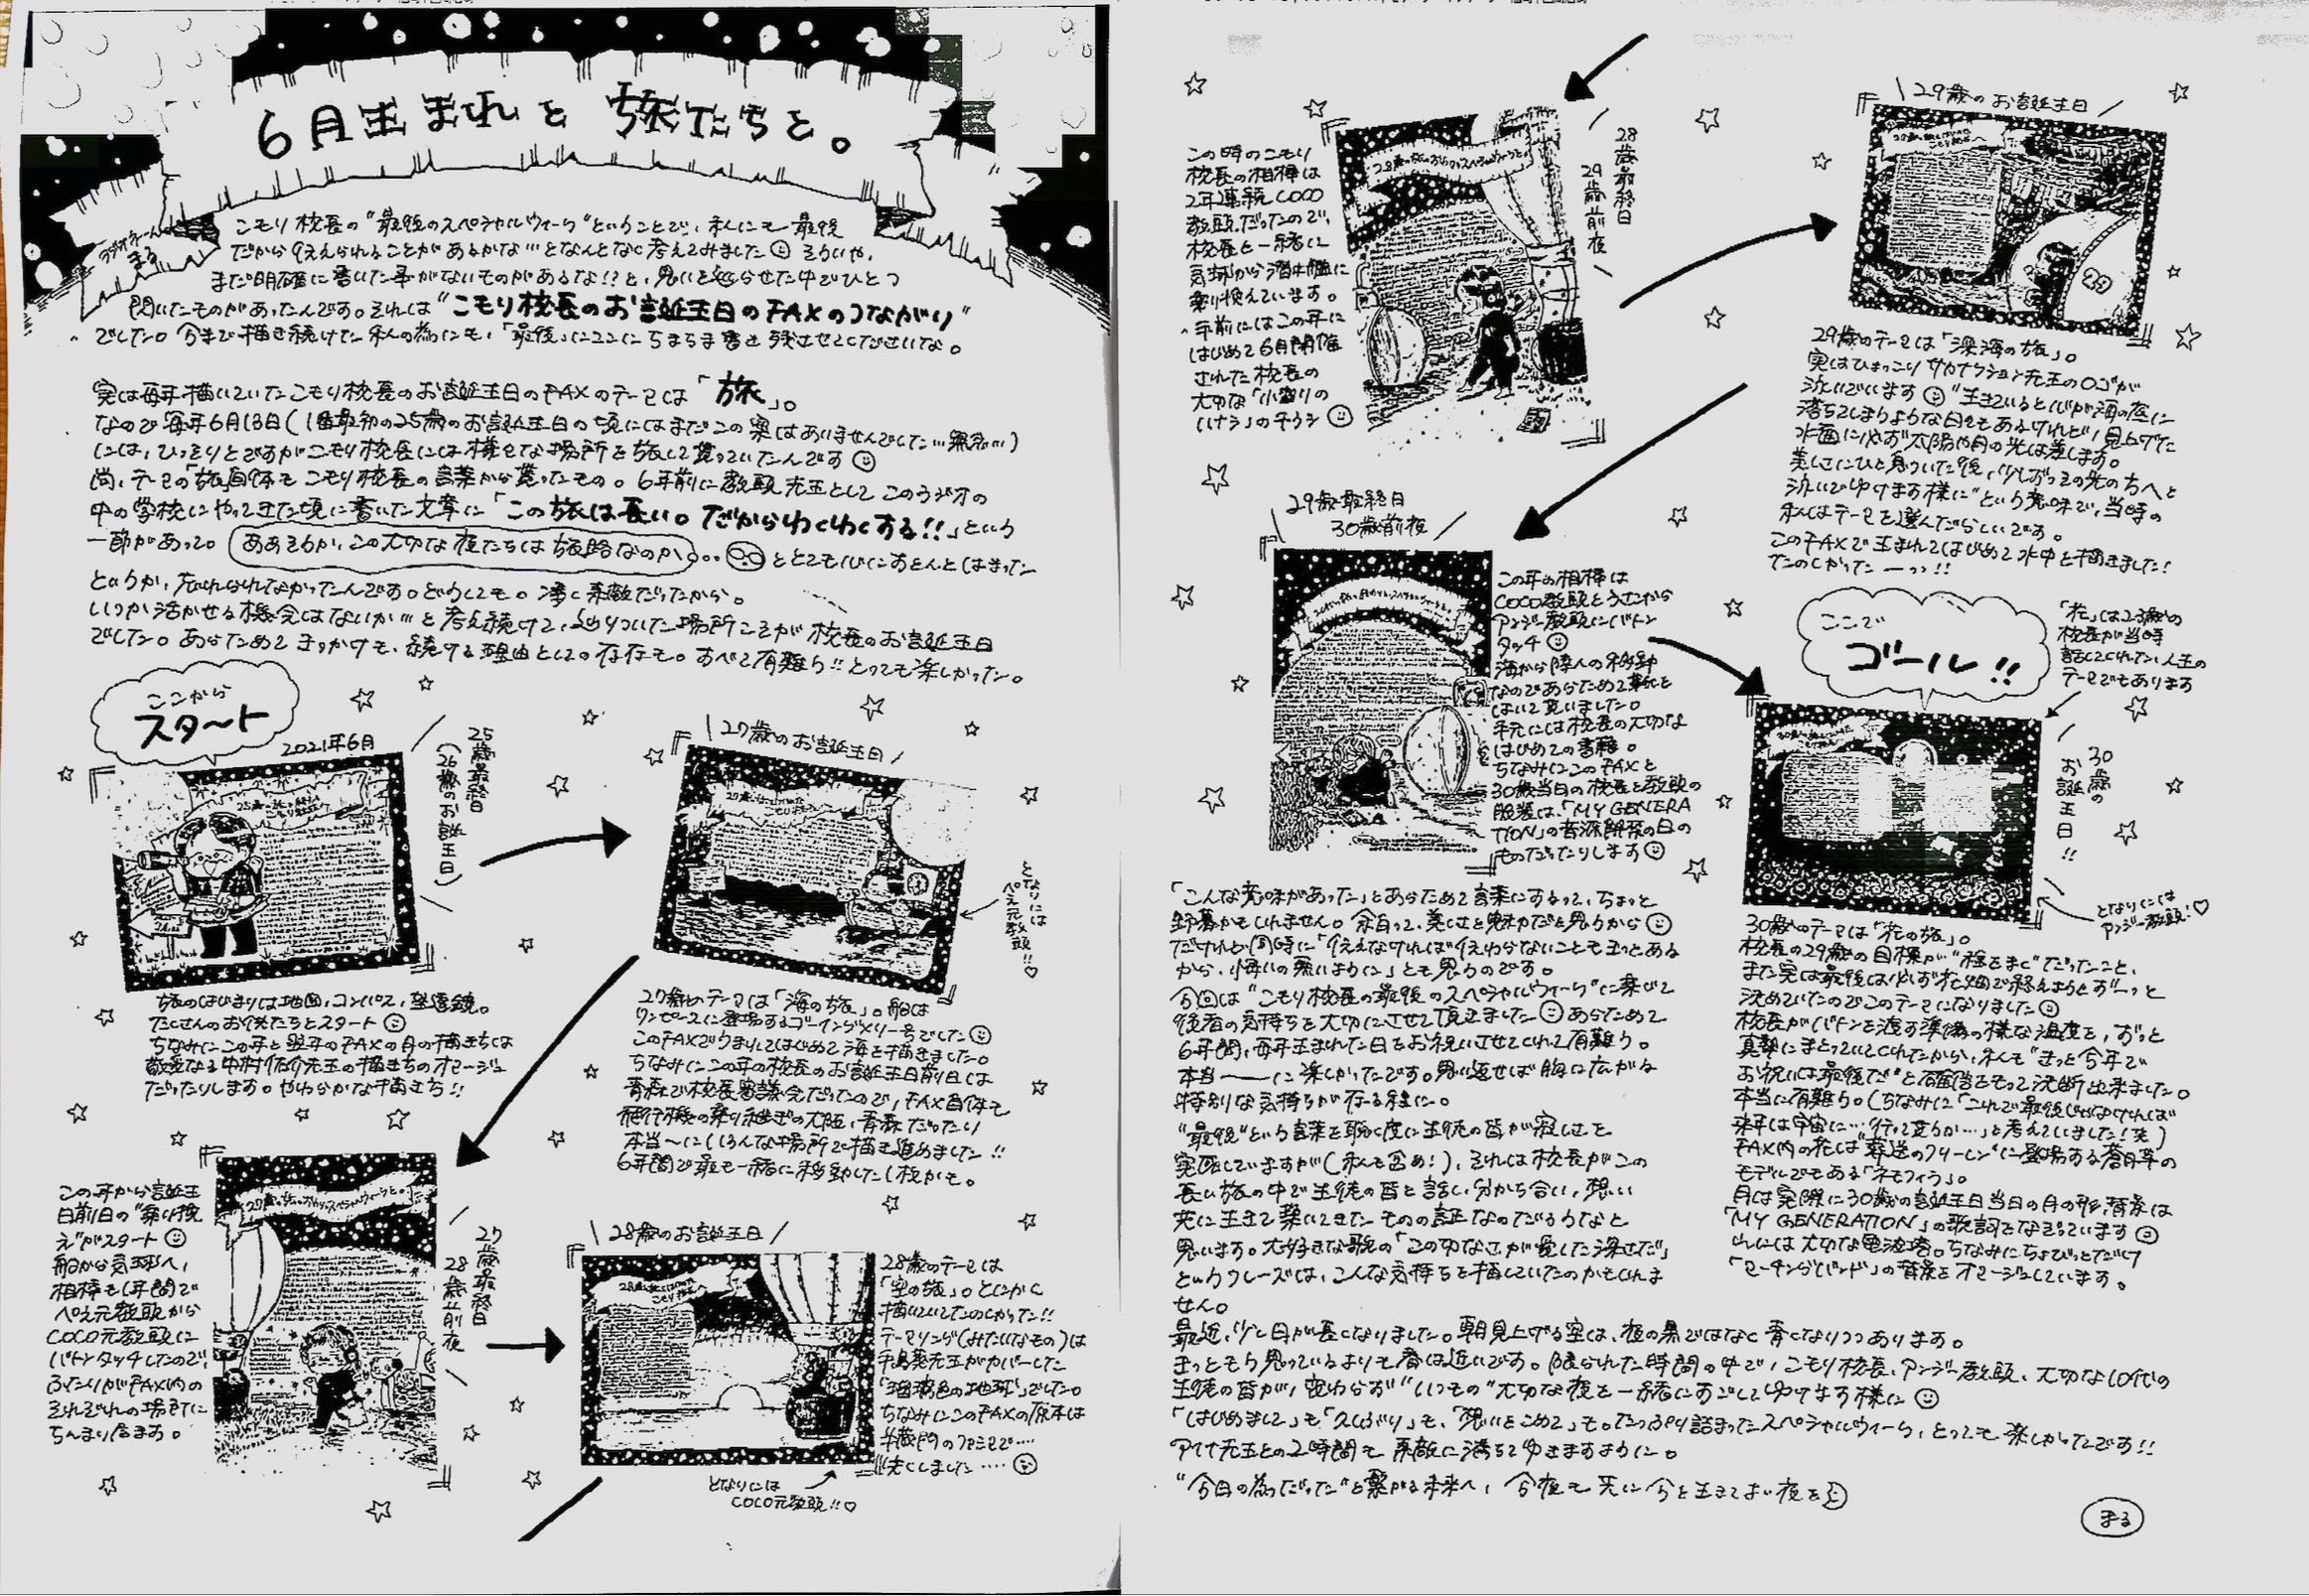 6月生まれと旅たちと。
ラジオネーム
まる
こもり校長の"最後のスペシャルウィーク"ということで、私にも最後
だから伝えられることがあるかな…となんとなく考えてみました そういや、
まだ明確に書いた事がないものがあるな!!と、思いを巡らせた中でひとつ
閃いたものがあったんです。それは"こもり校長のお誕生日のFAXのつながり"
でした。今まで描き続けた私の為にも、「最後」にココにちまちま書き残させてくださいな。
実は毎年描いていたこもり校長のお誕生日のFAXのテーマは「旅」。
なので毎年6月13日(1番最初の25歳のお誕生日の頃にはまだこの案はありませんでした…無念…)
には、ひっそりとですがこもり校長には様々な場所を旅して貰っていたんです
尚、テーマの「旅」自体もこもり校長の言葉から貰ったもの。6年前に教頭先生としてこのラジオの
中の学校にやってきた頃に書いた文章に「この旅は長い。だからわくわくする!!」という
一節があって。ああそうか、この大切な夜たちは旅路なのか。。ととても心にすとんとはまった
というか、忘れられなかったんです。どうしても。凄く素敵だったから。
いつか活かせる機会はないか…と考え続けて、辿りついた場所こそが校長のお誕生日
でした。あらためてきっかけも、続ける理由としての存在も。すべて有難う!!とっても楽しかったな。
ここから
スタ〜ト
2021年6月
25歳最終日
(26歳のお誕生日)
旅のはじまりは地図、コンパス、望遠鏡。
たくさんのお供たちとスタート
ちなみにこの年と翌年のFAXの目の描きちは
敬愛なる中村佑介先生の描きちのオマージュ
だったりします。やわらかな描きち!!
27歳のお誕生日
となりには
ぺえ元教頭!!♡
27歳のテーマは「海の旅」。船は
ワンピースに登場するゴーイングメリー号でした
このFAXでうまれてはじめて海を描きました。
ちなみにこの年の校長のお誕生日前日は
青森で校長審議会だったので、FAX自体も
飛行機の乗り継ぎの大阪、青森だったり
本当〜にいろんな場所で描き進めました!!
6年間で最も一緒に移動した1枚かも。
この年から誕生
日前日の"乗り換
え"がスタート
船から気球へ、
相棒も1年間で
ぺえ元教頭から
COCO元教頭に
バトンタッチしたので、
ふたりがFAX内の
それぞれの場所に
ちんまり居ます。
27歳最終日
28歳前夜
28歳のお誕生日
28歳のテーマは
「空の旅」。とにかく
描いていてたのしかった!!
テーマソング(みたいなもの)は
手嶌葵先生がカバーした
「瑠璃色の地球」でした。
ちなみにこのFAXの原本は
半蔵門のファミマで…
失くしました….
となりには
COCO元教頭!!♡
この時のこもり
校長の相棒は
2年連続COCO
教頭だったので、
校長と一緒に
気球から潜水艦に
乗り換えています。
手前にはこの年に
はじめて6月開催
された校長の
大切な「小盛りの
ハナシ」のチラシ
28歳最終日
29歳前夜
29歳のお誕生日
29歳のテーマは「深海の旅」。
実はひょっこりサカナクション先生のロゴが
泳いでいます "生きていると心が海の底に
落ちてしまうような日もあるけれど、見上げた
水面に必ず太陽や月の光は差します。
美しさにひと息ついた後、少しずつその光の方へと
泳いでゆけます様に"という意味で、当時の
私はテーマを選んだらしいです。
このFAXで生まれてはじめて水中を描きました!
たのしかったーっっ!!
29歳最終日
30歳前夜
この年の相棒は
COCO教頭とうさこから
アンジー教頭にバトン
タッチ
海から陸への移動
なのであらためて靴を
はいて貰いました。
手元には校長の大切な
はじめての書籍。
ちなみにこのFAXと
30歳当日の校長と教頭の
服装は、「MY GENERA
TION」の音源解禁の日の
ものだったりします
ここで
ゴール!!
「花」は23歳の
校長が当時
話してくれてた人生の
テーマでもあります
30歳の
お誕生日!!
となりには
アンジー教頭!♡
30歳のテーマは「花の旅」。
校長の29歳の目標が"種をまく"だったこと、
また実は最後は必ず花畑で終えようとずーっと
決めていたのでこのテーマになりました
校長がバトンを渡す準備の様な温度を、ずっと
真摯にまとっていてくれたから、私も"きっと今年で
お祝いは最後だ"と確信をもって決断出来ました。
本当に有難う。(ちなみに「これで最後じゃなければ
来年は宇宙に…行って貰うか…」と考えていました!笑)
FAX内の花は"葬送のフリーレン"に登場する蒼月草の
モデルでもある「ネモフィラ」。
月は実際に30歳の誕生日当日の月の形、背景は
「MY GENERATION」の歌詞をなぞっています
他には大切な電波塔。ちなみにちょびっとだけ
「マーチングバンド」の背景をオマージュしています。
「こんな意味があった」とあらためて言葉にするって、ちょっと
野暮かもしれません。余白って、美しさと魅力だと思うから
だけれど同時に「伝えなければ伝わらないこともきっとある
から、悔いの無いように」とも思うのです。
今回は"こもり校長の最後のスペシャルウィーク"に乗じて
後者の気持ちを大切にさせて頂きました あらためて
6年間、毎年生まれた日をお祝いさせてくれて有難う。
本当――に楽しかったです。思い返せば胸に広がる
特別な気持ちが在る程に。
"最後"という言葉を聴く度に生徒の皆が寂しさを
実感していますが(私も含め!)、それは校長がこの
長い旅の中で生徒の皆と話し、分かち合い、想い
共に生きて築いてきたものの証なのだろうなと
思います。大好きな歌の「この切なさが愛した深さだ」
というフレーズは、こんな気持ちを描いていたのかもしれま
せん。
最近、少し日が長くなりました。朝見上げる空は、夜の黒ではなく青くなりつつあります。
きっともう思っているよりも春は近いです。限られた時間の中で、こもり校長、アンジー教頭、大切な10代の
生徒の皆が、変わらず"いつもの"大切な夜を一緒にすごしてゆけます様に
「はじめまして」も「久しぶり」も、「想いをこめて」も。たっぷり詰まったスペシャルウィーク、とっても楽しかったです!!
アイナ先生との2時間も素敵に満ちてゆきますように。
"今日の為だった"と繋がる未来へ、今夜も共に今を生きてよい夜を
まる